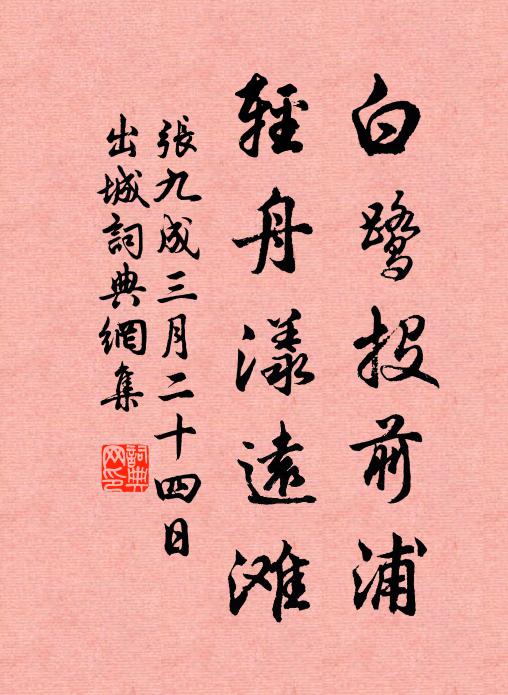 白鷺投前浦
輕舟漾遠滩
張九成三月二十四日
出城詞典網集
詞典网印